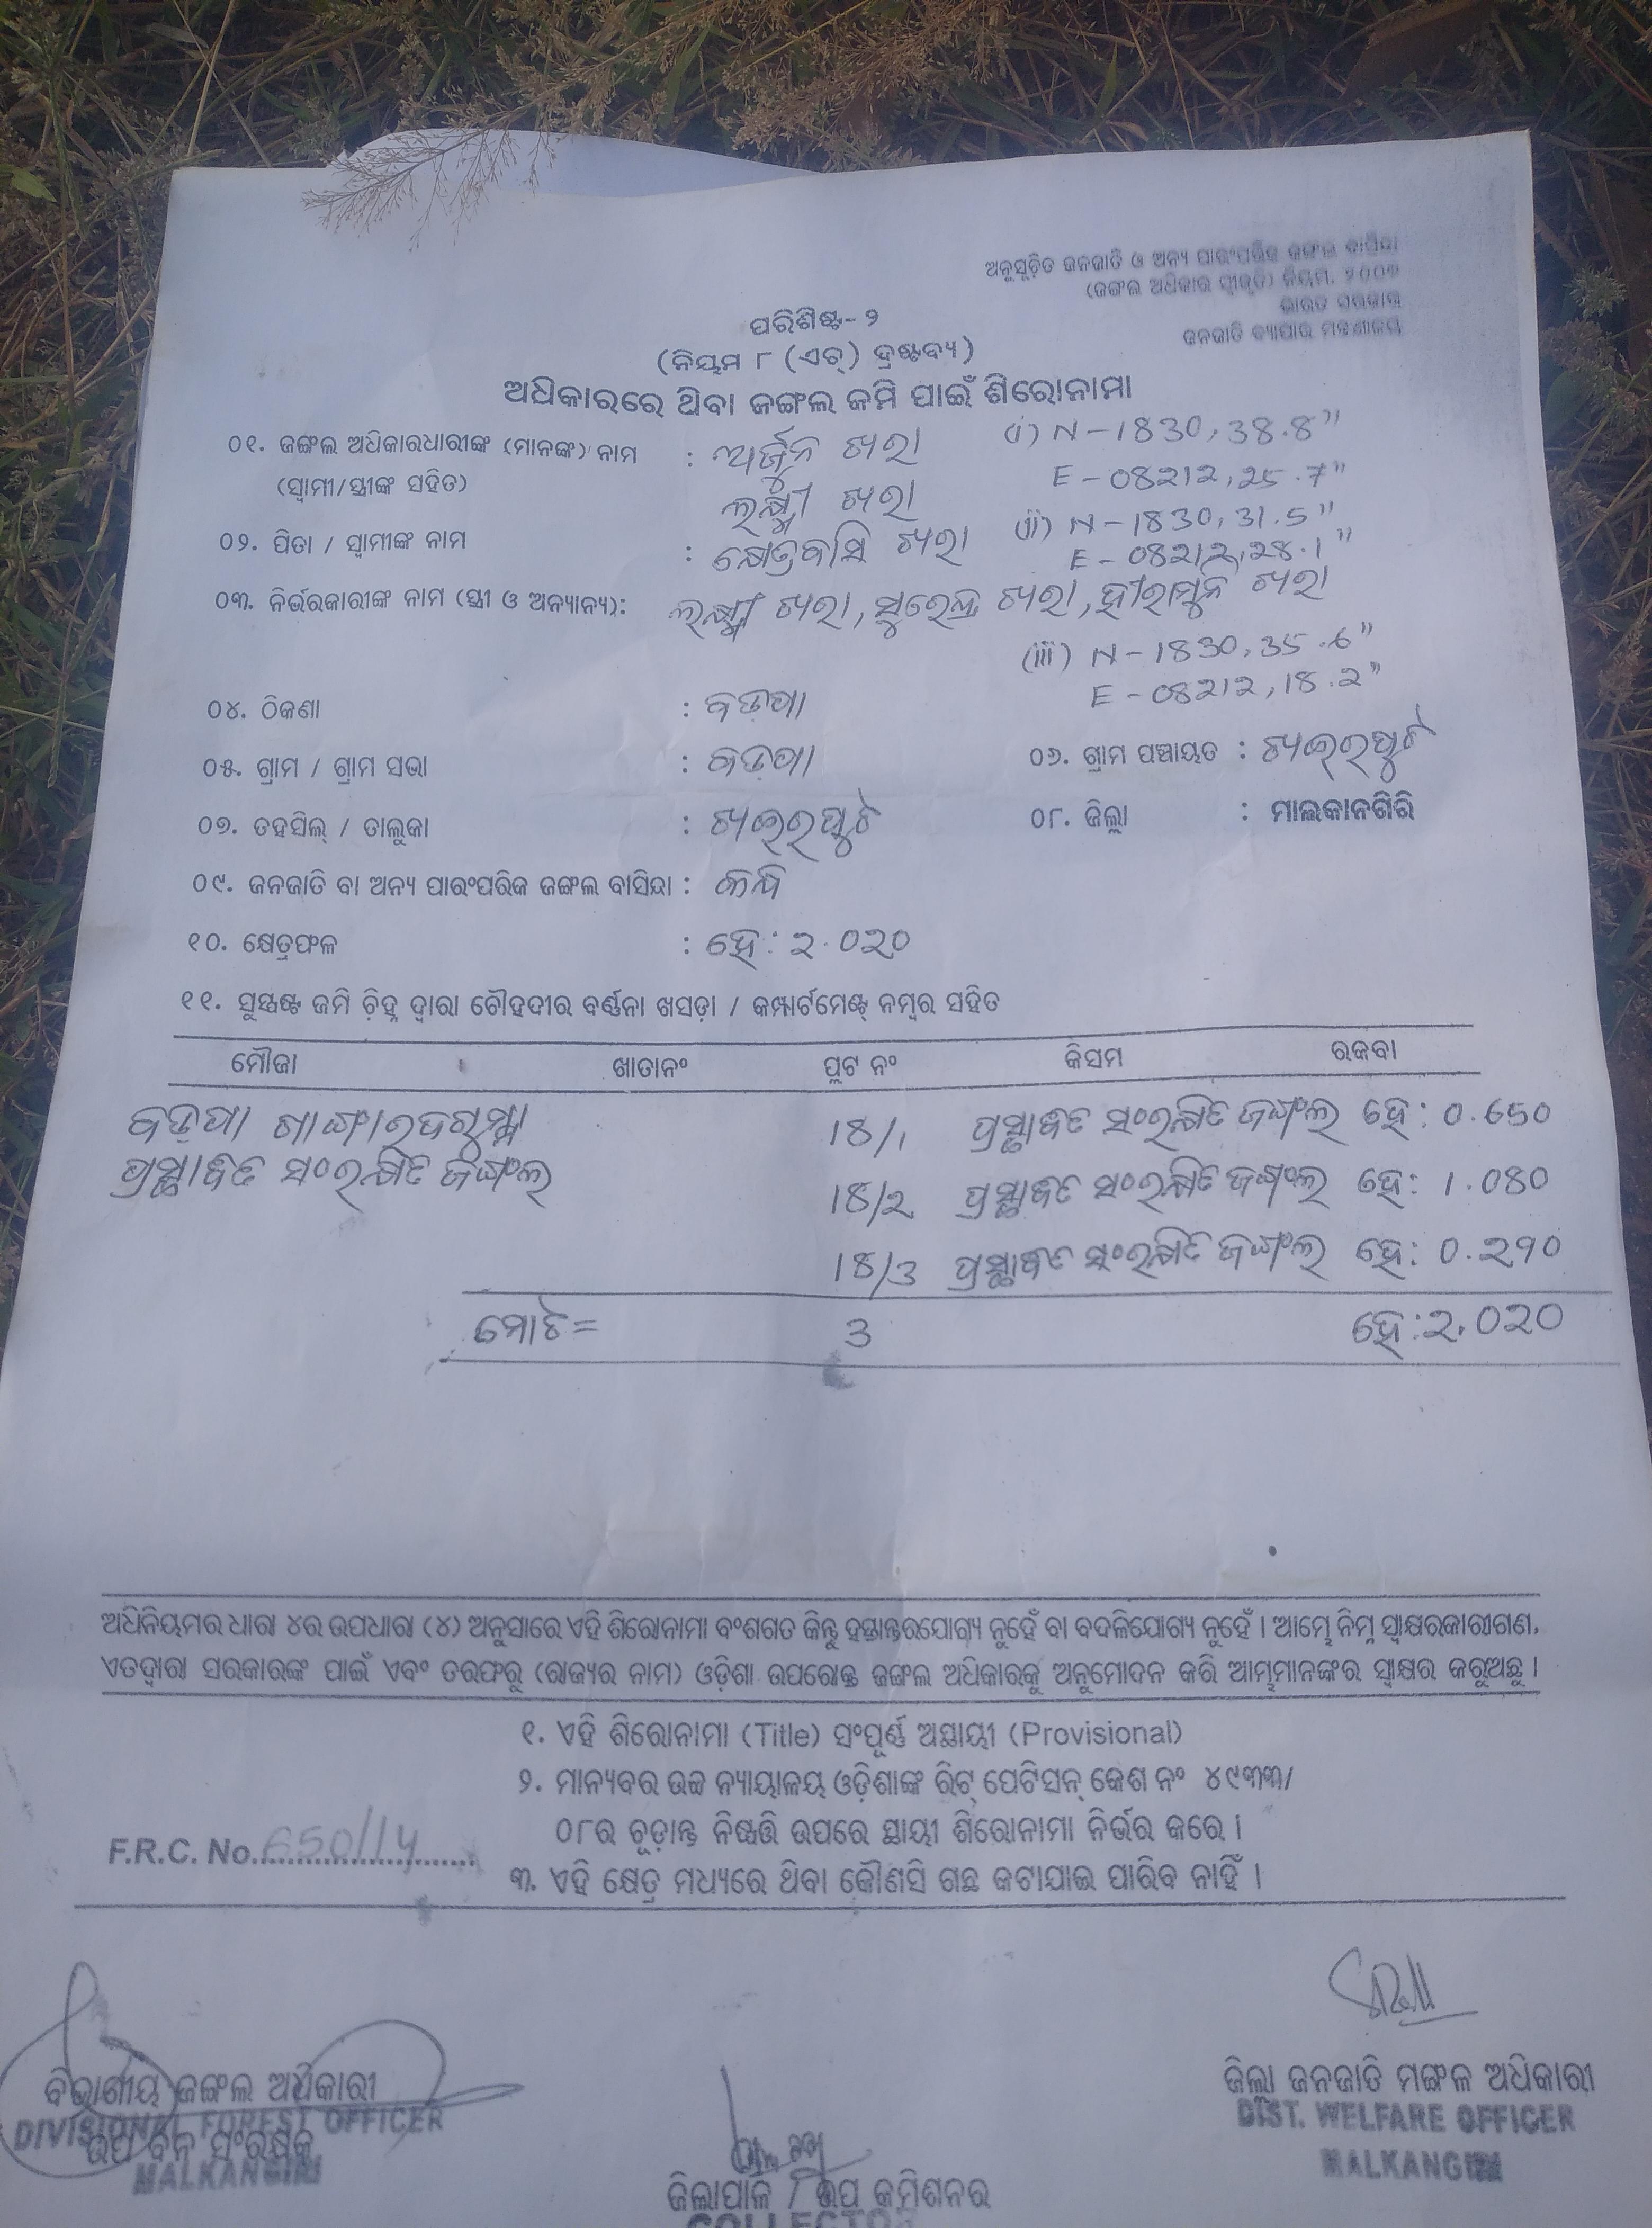 ଅନୁସୂଚିତ ଜନଜାତି ଓ ଅନ୍ୟ ପାରଂପରିକ ଜଙ୍ଗଲ ବାସିନ୍ଦା
(ଜଙ୍ଗଲ ଅଧିକାର ସ୍ୱୀକୃତି) ନିୟମ, ୨୦୦୭
ଭାରତ ସରକାର
ଜନଜାତି ବ୍ୟାପାର ମନ୍ତ୍ରଣାଳୟ
ପରିଶିଷ୍ଟ- ୨
(ନିୟମ ୮ (ଏଚ୍) ଦ୍ରଷ୍ଟବ୍ୟ)
ଅଧିକାରରେ ଥିବା ଜଙ୍ଗଲ ଜମି ପାଇଁ ଶିରୋନାମା
୦୧. ଜଙ୍ଗଲ ଅଧିକାରଧାରୀଙ୍କ (ମାନଙ୍କ) ନାମ : ଅର୍ଜୁନ ଖରା (i) N-1830, 38.8"
(ସ୍ୱାମୀ/ସ୍ତ୍ରୀଙ୍କ ସହିତ) ଲକ୍ଷ୍ମୀ ଖରା E-08212, 25.7"
୦୨. ପିତା / ସ୍ୱାମୀଙ୍କ ନାମ : କ୍ଷେତ୍ରବାସି ଖରା (ii) N-1830, 31.5"
E-08212, 28.1"
୦୩. ନିର୍ଭରକାରୀଙ୍କ ନାମ (ସ୍ତ୍ରୀ ଓ ଅନ୍ୟାନ୍ୟ): ଲକ୍ଷ୍ମୀ ଖରା, ସୁରେନ୍ଦ୍ର ଖରା, ହୀରାମୁନି ଖରା
(iii) N-1830, 35.6"
E-08212, 18.2"
୦୪. ଠିକଣା : ବଡପା
୦୫. ଗ୍ରାମ / ଗ୍ରାମ ସଭା : ବଡ଼ପା ୦୬. ଗ୍ରାମ ପଞ୍ଚାୟତ : ଖଇରପୁଟ
୦୭. ତହସିଲ୍ / ତାଲୁକା : ଖଇରପୁଟ ୦୮. ଜିଲ୍ଲା : ମାଲକାନଗିରି
୦୯. ଜନଜାତି ବା ଅନ୍ୟ ପାରଂପରିକ ଜଙ୍ଗଲ ବାସିନ୍ଦା :
୧୦. କ୍ଷେତ୍ରଫଳ : ହେ: 2.020
୧୧. ସୁସ୍ପଷ୍ଟ ଜମି ଚ଼ିହ୍ନ ଦ୍ୱାରା ଚୌହଦୀର ବର୍ଣ୍ଣନା ଖସଡ଼ା / କମ୍ପାର୍ଟମେଣ୍ଟ୍ ନମ୍ବର ସହିତ
ମୌଜା ଖାତାନଂ ପ୍ଲଟ ନଂ କିସମ ରକବା
ବଡ଼ପା 18/1 ପ୍ରସ୍ତାବିତ ସଂରକ୍ଷିତ ଜଙ୍ଗଲ ହେ: 0.650
ପ୍ରସ୍ତାବିତ ସଂରକ୍ଷିତ ଜଙ୍ଗଲ 18/2 ପ୍ରସ୍ତାବିତ ସଂରକ୍ଷିତ ଜଙ୍ଗଲ ହେ: 1.080
18/3 ପ୍ରସ୍ତାବିତ ସଂରକ୍ଷିତ ଜଙ୍ଗଲ ହେ: 0.290
ମୋଟ= 3 ହେ: 2.020
ଅଧିନିୟମର ଧାରା ୪ର ଉପଧାରା (୪) ଅନୁସାରେ ଏହି ଶିରୋନାମା ବଂଶଗତ କିନ୍ତୁ ହସ୍ତାନ୍ତରଯୋଗ୍ୟ ନୁହେଁ ବା ବଦଳିଯୋଗ୍ୟ ନୁହେଁ । ଆମ୍ଭେ ନିମ୍ନ ସ୍ୱାକ୍ଷରକାରୀଗଣ,
ଏତଦ୍ୱାରା ସରକାରଙ୍କ ପାଇଁ ଏବଂ ତରଫରୁ (ରାଜ୍ୟର ନାମ) ଓଡ଼ିଶା ଉପରୋକ୍ତ ଜଙ୍ଗଲ ଅଧିକାରକୁ ଅନୁମୋଦନ କରି ଆମ୍ଭମାନଙ୍କର ସ୍ୱାକ୍ଷର କରୁଅଛୁ ।
୧. ଏହି ଶିରୋନାମା (Title) ସଂପୂର୍ଣ୍ଣ ଅସ୍ଥାୟୀ (Provisional)
୨. ମାନ୍ୟବର ଉଚ୍ଚ ନ୍ୟାୟାଳୟ ଓଡ଼ିଶାଙ୍କ ରିଟ୍ ପେଟିସନ୍ କେଶ ନଂ ୪୯୩୩/
୦୮ର ଚୂଡ଼ାନ୍ତ ନିଷ୍ପତ୍ତି ଉପରେ ସ୍ଥାୟୀ ଶିରୋନାମା ନିର୍ଭର କରେ ।
F.R.C. No. 650/14
୩. ଏହି କ୍ଷେତ୍ର ମଧ୍ୟରେ ଥିବା କୌଣସି ଗଛ କଟାଯାଇ ପାରିବ ନାହିଁ ।
ବିଭାଗୀୟ ଜଙ୍ଗଲ ଅଧିକାରୀ
DIVISIONAL FOREST OFFICER
ଉପ ବନ ସଂରକ୍ଷକ
MALKANGIRI
ଜିଲ୍ଲାପାଳ / ଉପ କମିଶନର
COLLECTOR
ଜିଲ୍ଲା ଜନଜାତି ମଙ୍ଗଳ ଅଧିକାରୀ
DIST. WELFARE OFFICER
MALKANGIRI